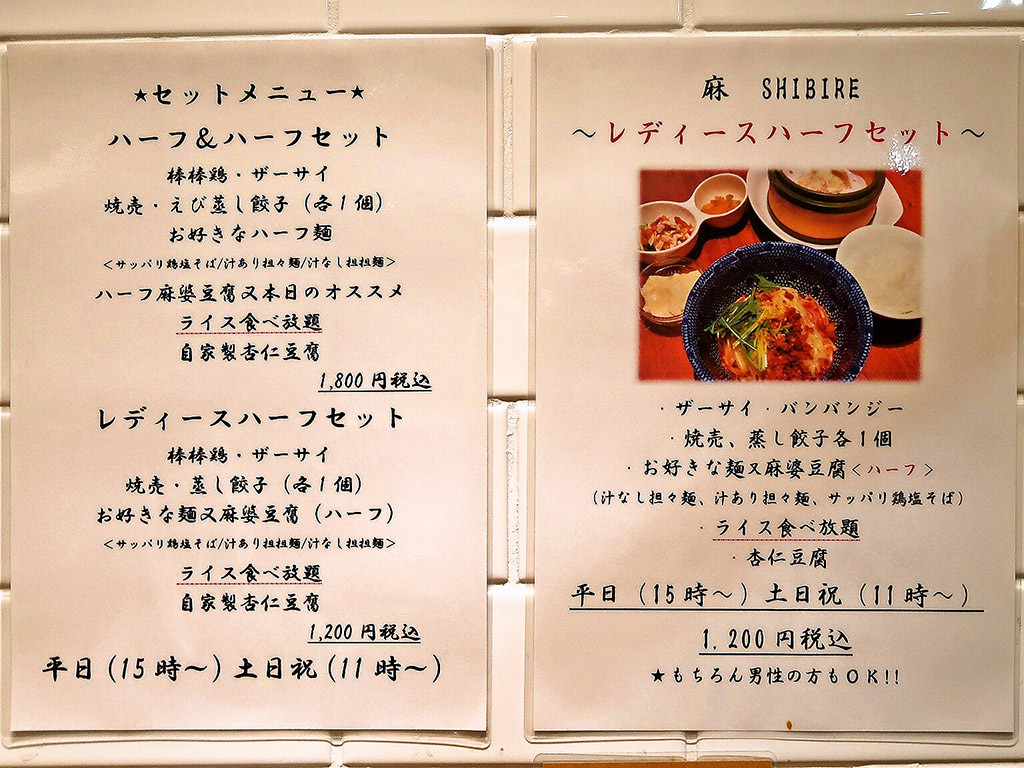 ★セットメニュー★
ハーフ＆ハーフセット
棒棒鶏・ザーサイ
焼売・えび蒸し餃子（各１個）
お好きなハーフ麺
＜サッパリ鶏塩そば/汁あり担々麺/汁なし担担麺＞
ハーフ麻婆豆腐又本日のオススメ
ライス食べ放題
自家製杏仁豆腐
1,800円税込
レディースハーフセット
棒棒鶏・ザーサイ
焼売・蒸し餃子（各１個）
お好きな麺又麻婆豆腐（ハーフ）
＜サッパリ鶏塩そば/汁あり担担麺/汁なし担担麺＞
ライス食べ放題
自家製杏仁豆腐
1,200円税込
平日（15時～）土日祝（11時～）
麻　SHIBIRE
～レディースハーフセット～
・ザーサイ・バンバンジー
・焼売、蒸し餃子各１個
・お好きな麺又麻婆豆腐＜ハーフ＞
（汁なし担々麺、汁あり担々麺、サッパリ鶏塩そば）
・ライス食べ放題
・杏仁豆腐
平日（15時～）土日祝（11時～）
1.200円税込
★もちろん男性の方もＯＫ!!